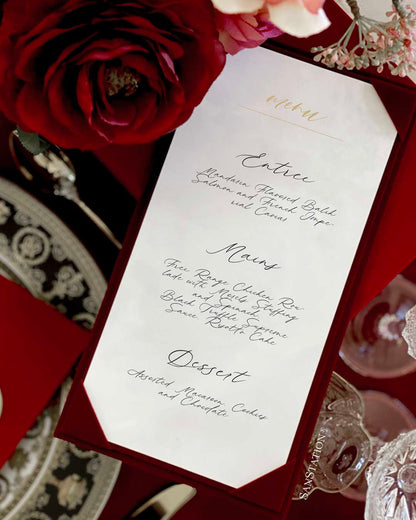 menu
Entree
Mandarin Flavored Balik
Salmon and French Impe-
rial Caviar
Mains
Free Range Chicken Rou-
lade with Morels Stuffing
and Spinach
Black Truffle Supreme
Sauce Risotto Cake
Dessert
Assorted Macaroon, Cookies
and Chocolate
SANSTATION